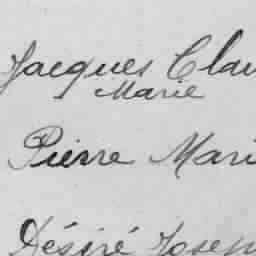 Jacques Clau
Marie
Pierre Mari
Désiré Josep